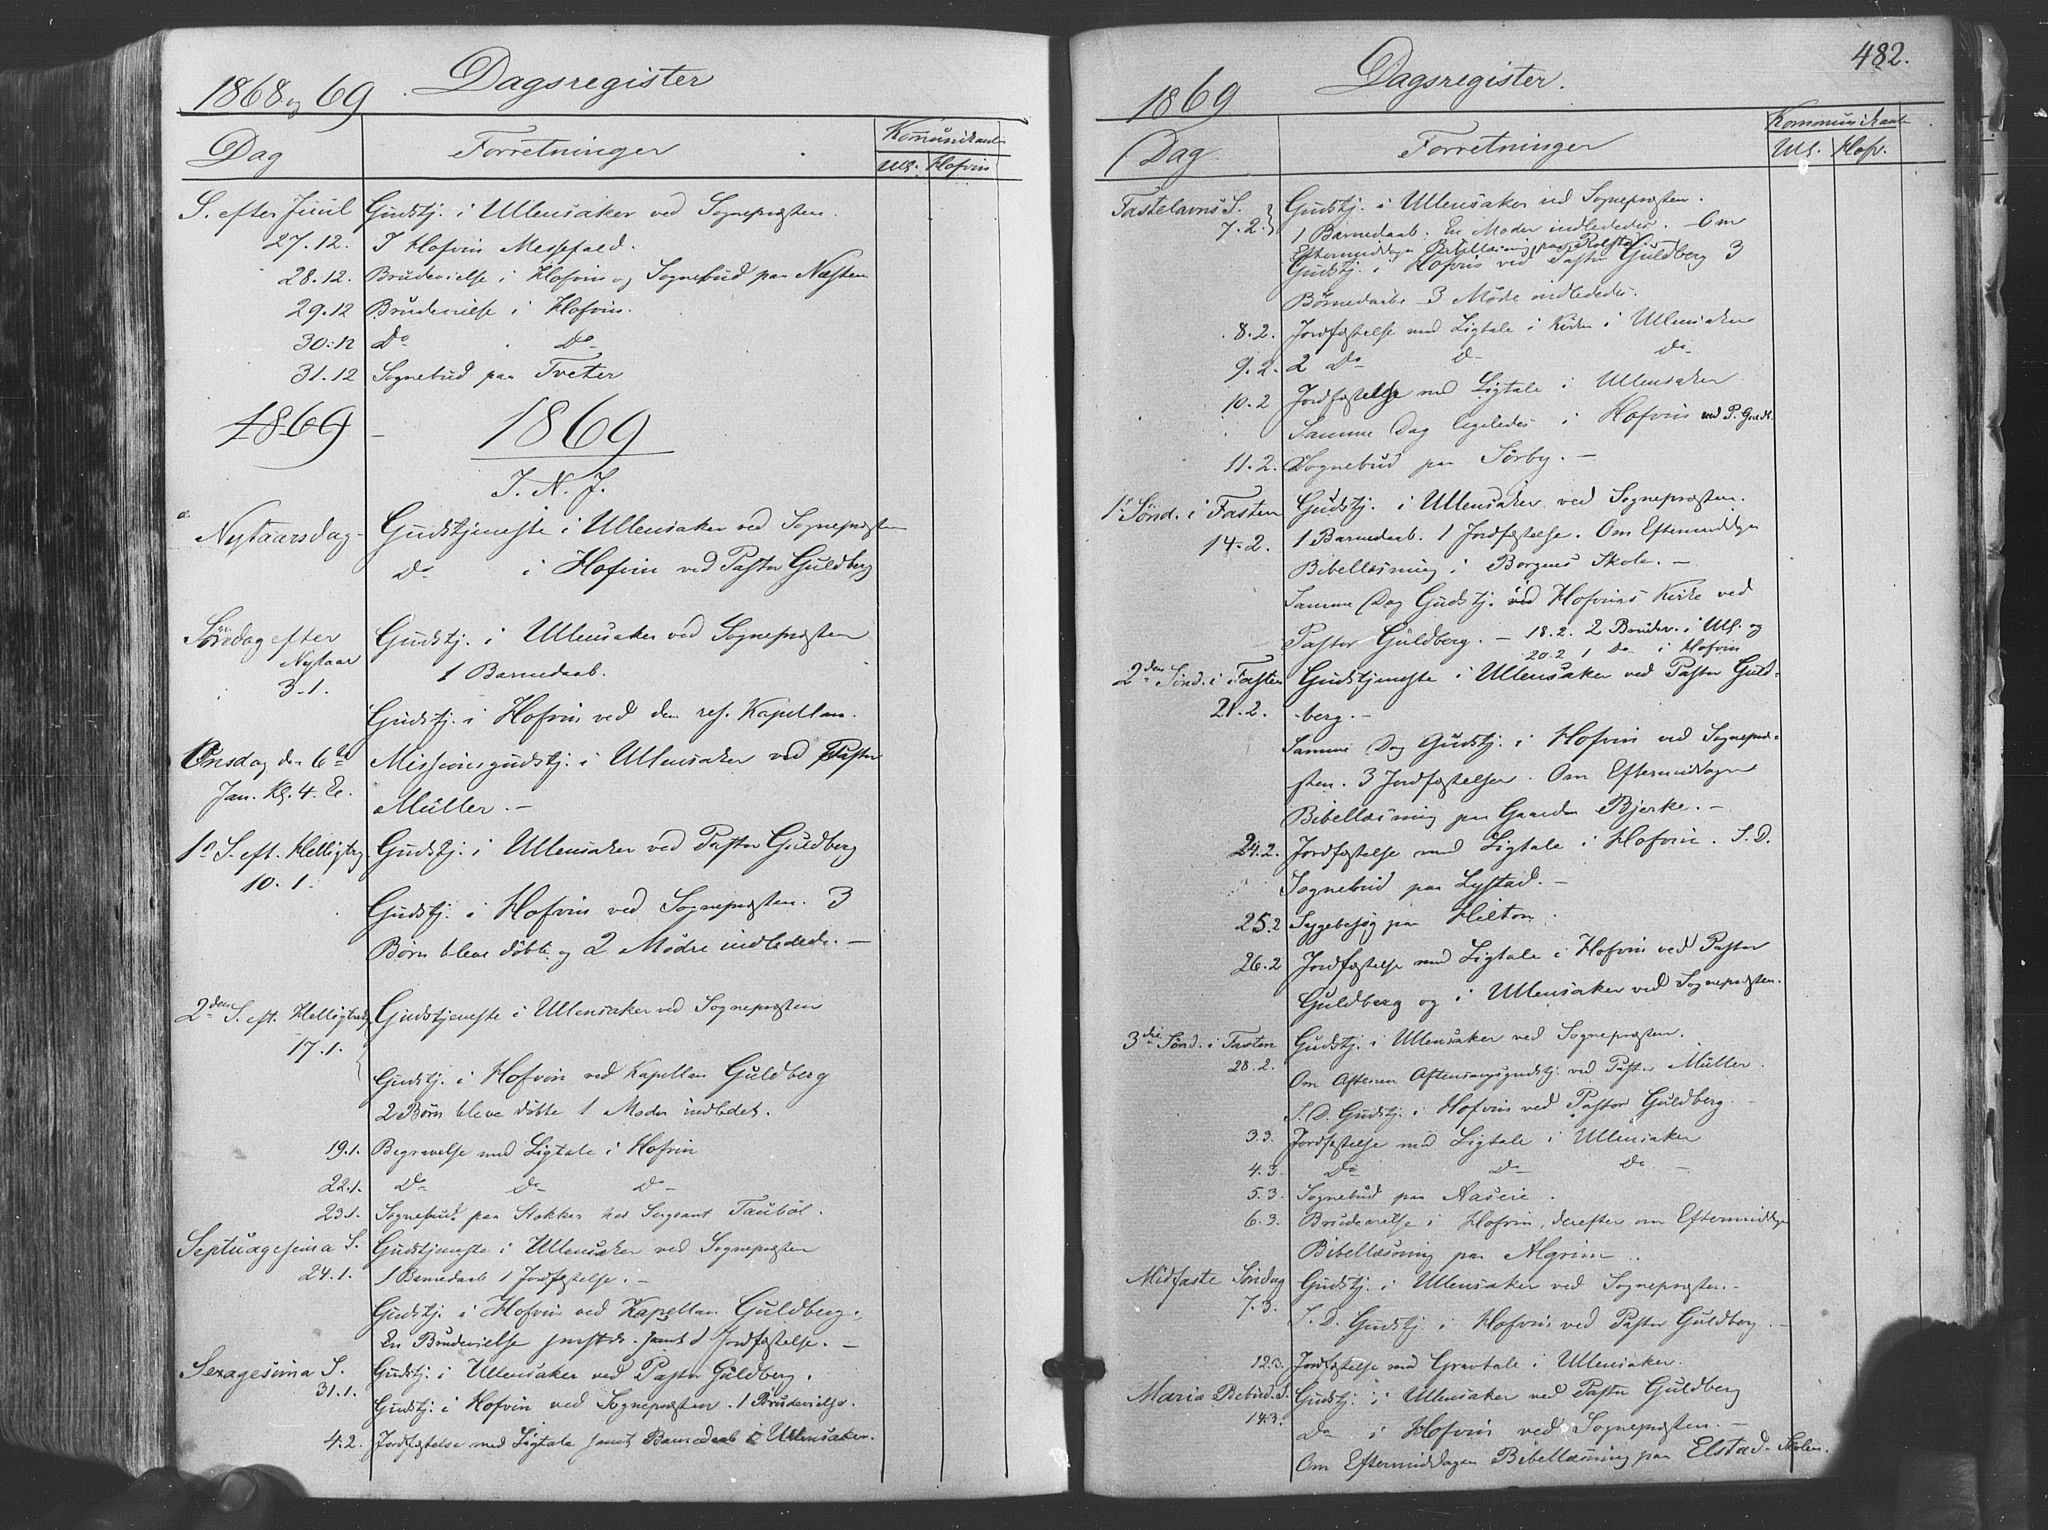 1868 og 69 Dagsregister
Dag Forretninger Kommunikanter
Ull. Hofvin
S. efter Juul Gudstj. i Ullensaker ved Sognepræsten.
27.12. I Hofvin Messefald.
28.12. Brudevielse i Hofvin og Sognebud paa Næsten
29.12 Brudevielse i Hofvin.
30.12 Do Do
31.12 Sognebud paa Tveter
1869 - 1869
I. N. J.
Nytaarsdag - Gudstjeneste i Ullensaker ved Sognepræsten
Do i Hofvin ved Pastor Guldberg
Søndag efter Gudstj. i Ullensaker ved Sognepræsten
Nytaar 1 Barnedaab.
3.1.
Gudstj. i Hofvin ved den res. Kapellan.
Onsdag den 6te Missionsgudstj. i Ullensaker ved Pastor
Jan. Kl. 4. E. Müller. -
1ste S. eft. Helligtrek. Gudstj. i Ullensaker ved Pastor Guldberg
10.1.
Gudstj. i Hofvin ved Sognepræsten. 3
Børn bleve døbte og 2 Mødre indledede. -
2den S. eft. Helligtrek. Gudstjeneste i Ullensaker ved Sognepræsten
17.1.
Gudstj. i Hofvin ved Kapellan Guldberg
2 Børn bleve døbte 1 Moder indledet.
19.1. Begravelse med Ligtale i Hofvin
22.1. Do Do Do -
23.1. Sognebud paa Stokker hos Sergeant Taubøl.
Septuagesima S. Gudstjeneste i Ullensaker ved Sognepræsten
24.1. 1 Barnedaab 1 Jordfæstelse. -
Gudstj. i Hofvin ved Kapellan Guldberg.
En Brudevielse samt 1 Jordfæstelse. -
Sexagesima S. Gudstj. i Ullensaker ved Pastor Guldberg.
31.1. Gudstj. i Hofvin ved Sognepræsten. 1 Brudevielse.
4.2. Jordfæstelse med Ligtale samt Barnedaab i Ullensaker.
482.
1869 Dagsregister.
Dag. Forretninger Kommunikant
Ull. Hofv.
Fastelavns S. Gudstj. i Ullensaker ved Sognepræsten.
7.2. 1 Barnedaab. En Moder indlededes. - Om
Eftermiddagen Bibellæsning paa Rolstad. -
Gudstj. i Hofvin ved Pastor Guldberg 3
Børnedaabe 3 Mødre indlededes.
8.2. Jordfæstelse med Ligtale i Kirken i Ullensaker
9.2. 2 Do Do Do -
10.2 Jordfæstelse med Ligtale i Ullensaker
Samme Dag ligeledes i Hofvin ved P. Guldb.
11.2. Sognebud paa Sørby. -
1ste Sønd. i Fasten Gudstj. i Ullensaker ved Sognepræsten.
14.2. 1 Barnedaab. 1 Jordfæstelse. Om Eftermiddagen
Bibellæsning i Borgens Skole. -
Samme Dag Gudstj. ved Hofvins Kirke ved
Pastor Guldberg. - 18.2. 2 Brudev. i Ull. og
20.2 1 Do i Hofvin
2den Sønd. i Fasten Gudstjeneste i Ullensaker ved Pastor Guld-
21.2. berg. -
Samme Dag Gudstj. i Hofvin ved Sognepræ-
sten. 3 Jordfæstelser. Om Eftermiddagen
Bibellæsning paa Gaarden Bjerke. -
24.2. Jordfæstelse med Ligtale i Hofvin. S.D.
Sognebud paa Lystad. -
25.2 Sygebesøg paa Hilton.
26.2 Jordfæstelse med Ligtale i Hofvin ved Pastor
Guldberg og i Ullensaker ved Sognepræsten.
3die Sønd. i Fasten Gudstj. i Ullensaker ved Sognepræsten.
28.2. Om Aftenen Aftensangsgudstj. ved Pastor Müller.
S.D. Gudstj. i Hofvin ved Pastor Guldberg. -
3.3. Jordfæstelse med Ligtale i Ullensaker
4.3 Do Do Do -
5.3. Sognebud paa Aaserie.
6.3. Brudevielse i Hofvin, derefter om Eftermiddagen
Bibellæsning paa Algrim.
Midfaste Søndag Gudstj. i Ullensaker ved Sognepræsten. -
7.3. S.D. Gudstj. i Hofvin ved Pastor Guldberg. -
12.3. Jordfæstelse med Gravtale i Ullensaker.
Mariæ Bebud. S. Gudstj. i Ullensaker ved Pastor Guldberg
14.3. Do i Hofvin ved Sognepræsten. -
Om Eftermiddagen Bibellæsning paa Elstad-Skolen.